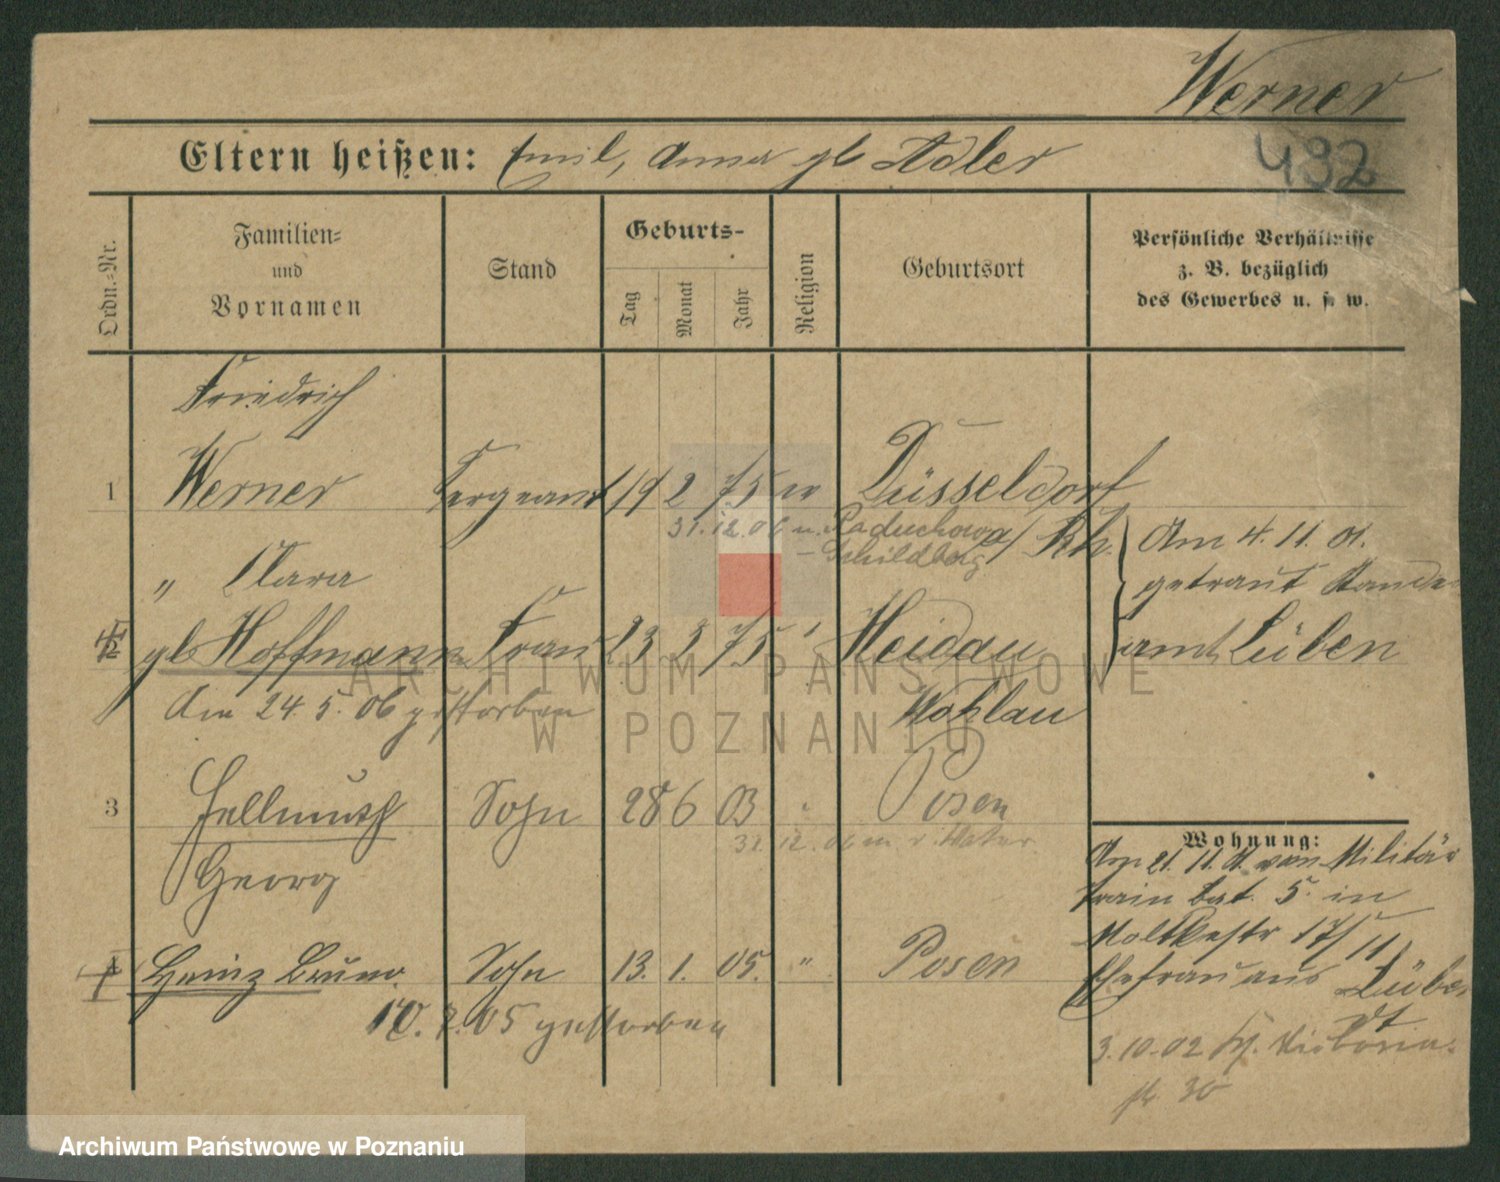 Werner
Eltern heißen: Emil, Anna gb Adler
492
Ordn.-Nr.
Familien-
und
Vornamen
Stand
Geburts-
Tag
Monat
Jahr
Religion
Geburtsort
Persönliche Verhältnisse
z. B. bezüglich
des Gewerbes u. s. w.
Friedrich
1 Werner Sergeant 19 2 75 ev Düsseldorf
31.12.06 n. Raduchow a/Rh.
- Schildberg
" Clara
2 gb Hoffmann Frau 23 3 75 " Heidau
Wohlau
den 24.5.06 gestorben
Am 4.11.01.
getraut Standes
amt Lüben
3 Hellmuth Sohn 28 6 03 " Posen
31.12.06 m. v. Vater
Georg
4 Heinz Bruno. Sohn 13. 1. 05. " Posen
10.7.05 gestorben
Wohnung:
Am 21.11.01 von Militär
train Bat. 5. in
Moltkestr 17/II
Ehefrau aus Lüben
3.10.02 Victoria-
str 30
ARCHIWUM PAŃSTWOWE
W POZNANIU
Archiwum Państwowe w Poznaniu